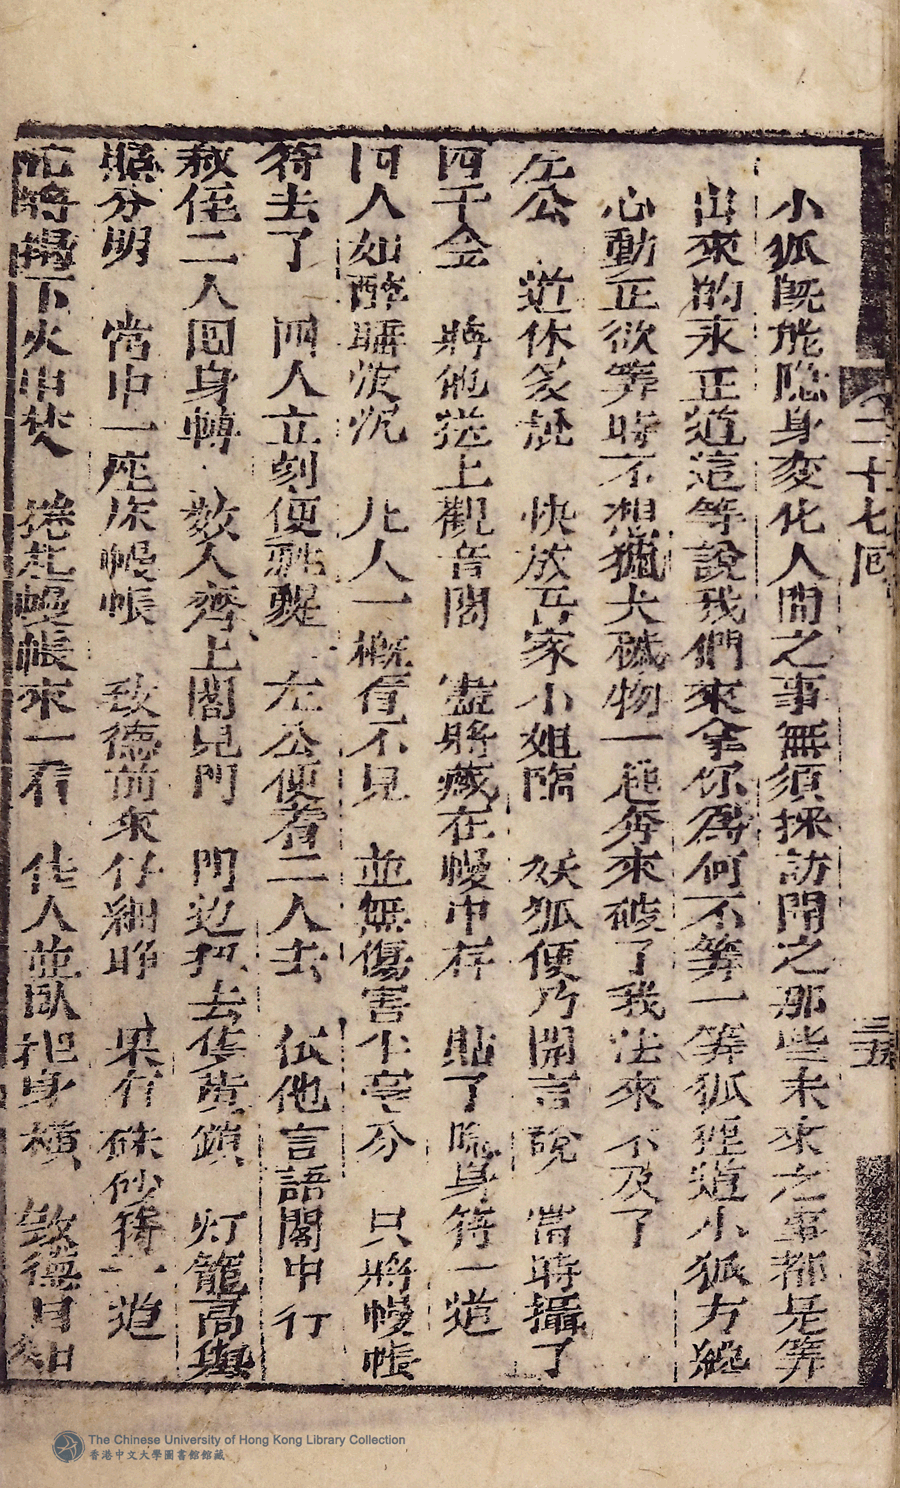 二十七囘
三五
小狐既能隐身変化人間之事無須採訪聞之那些未來之事都是筭
出來的永正道這等說我們來拿你為何不筭一筭狐狸道小狐方纔
心動正欲筭時不想獵犬穢物一起奔來破了我法來不及了
左公 道休多説 快放吾家小姐臨 妖狐便乃開言說 當時攝了
四千金 將他送上觀音閣 盡將藏在幔中存 貼了隐身符一道
四人如醉睡沉沉 凡人一概看不見 並無傷害半毫分 只將幔帳
符去了 四人立刻便甦醒 左公便着二人去 依他言語閣中行
叔侄二人囘身轉 数人齊上閣見門 門边扭去黄鎖 灯籠高與
照分明 當中一座床幔帳 致德前來仔細睁 果有硃砂符一道
忙將揭下火中焚 捲起幔帳來一看 佳人並臥把身橫 致德目知
The Chinese University of Hong Kong Library Collection
香港中文大學圖書館館藏